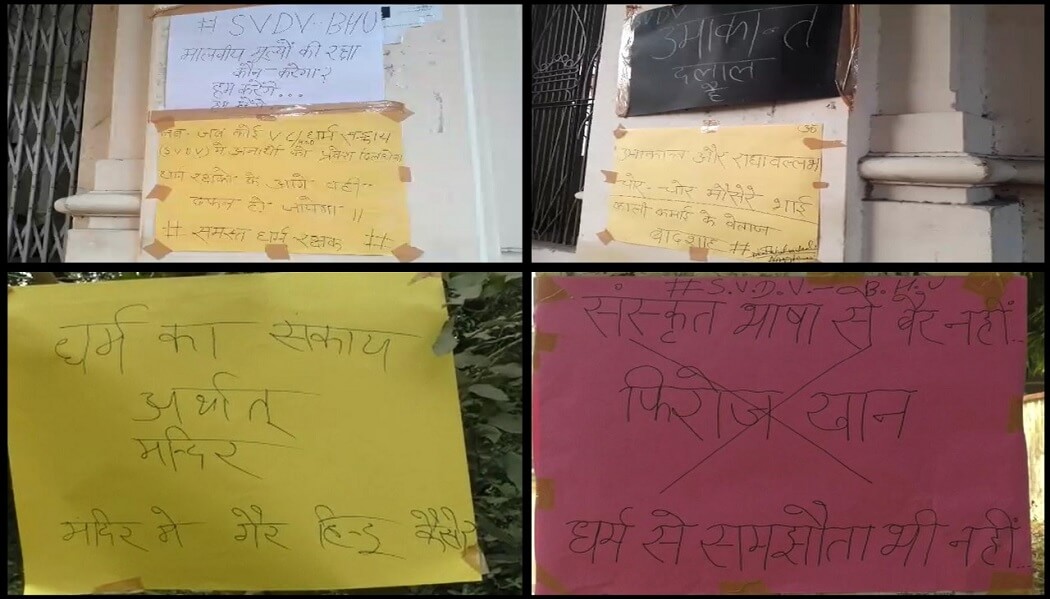 # SVDV-BHU
मालवीय मूल्यों की रक्षा
कौन करेगा?
हम करेंगे...
जब-जब कोई VC धर्म सङ्काय
(SVDV) में अनार्यो का प्रवेश
धर्म रक्षको के आगे वही
दफन हो जायेगा ॥
# समस्त धर्म रक्षक #
SVDV
उमाकान्त
दलाल
है
उमाकान्त और राधावल्लभ
चोर-चोर मौसेरे भाई
काली कमाई के बेताज
बादशाह ##
धर्म का संकाय
अर्थात्
मन्दिर
मंदिर मे गैर हिन्दू कैसे?
# S.V.D.V - B.H.U
संस्कृत भाषा से बैर नहीं..
फिरोज खान
धर्म से समझौता भी नहीं...